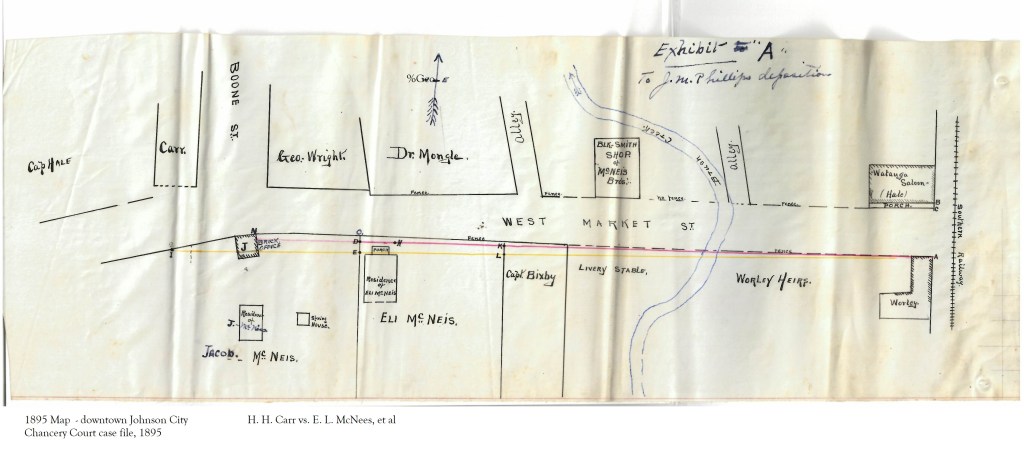 Exhibit "A"
To J. M. Phillips deposition
BOONE ST.
Cap HALE
Carr.
Geo. Wright.
Dr. Mongle.
alley
BLK-SMITH
SHOP
OF
McNEIS
Bros.
CREEK
alley
Watauga
Saloon
(Hale)
PORCH
Southern
Railway
FENCE
FENCE
NO FENCE
FENCE
WEST MARKET ST.
N
J
BRICK
OFFICE
I
D
E
H
FENCE
K
L
FENCE
A
PORCH
Residence
of
ELI McNEIS
Capt Bixby
LIVERY STABLE,
WORLEY HEIRS.
Worley
Residence
of
J.
Spring
House.
ELI McNEIS.
JACOB. McNEIS.
1895 Map - downtown Johnson City
Chancery Court case file, 1895
H. H. Carr vs. E. L. McNees, et al